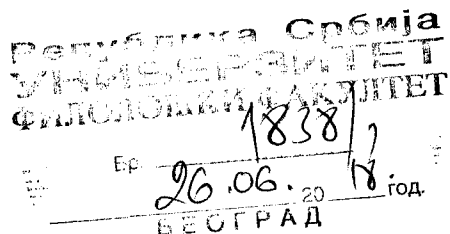 Република Србија
УНИВЕРЗИТЕТ
ФИЛОЛОШКИ ФАКУЛТЕТ
Бр. 1838/
26.06. 20 год.
БЕОГРАД